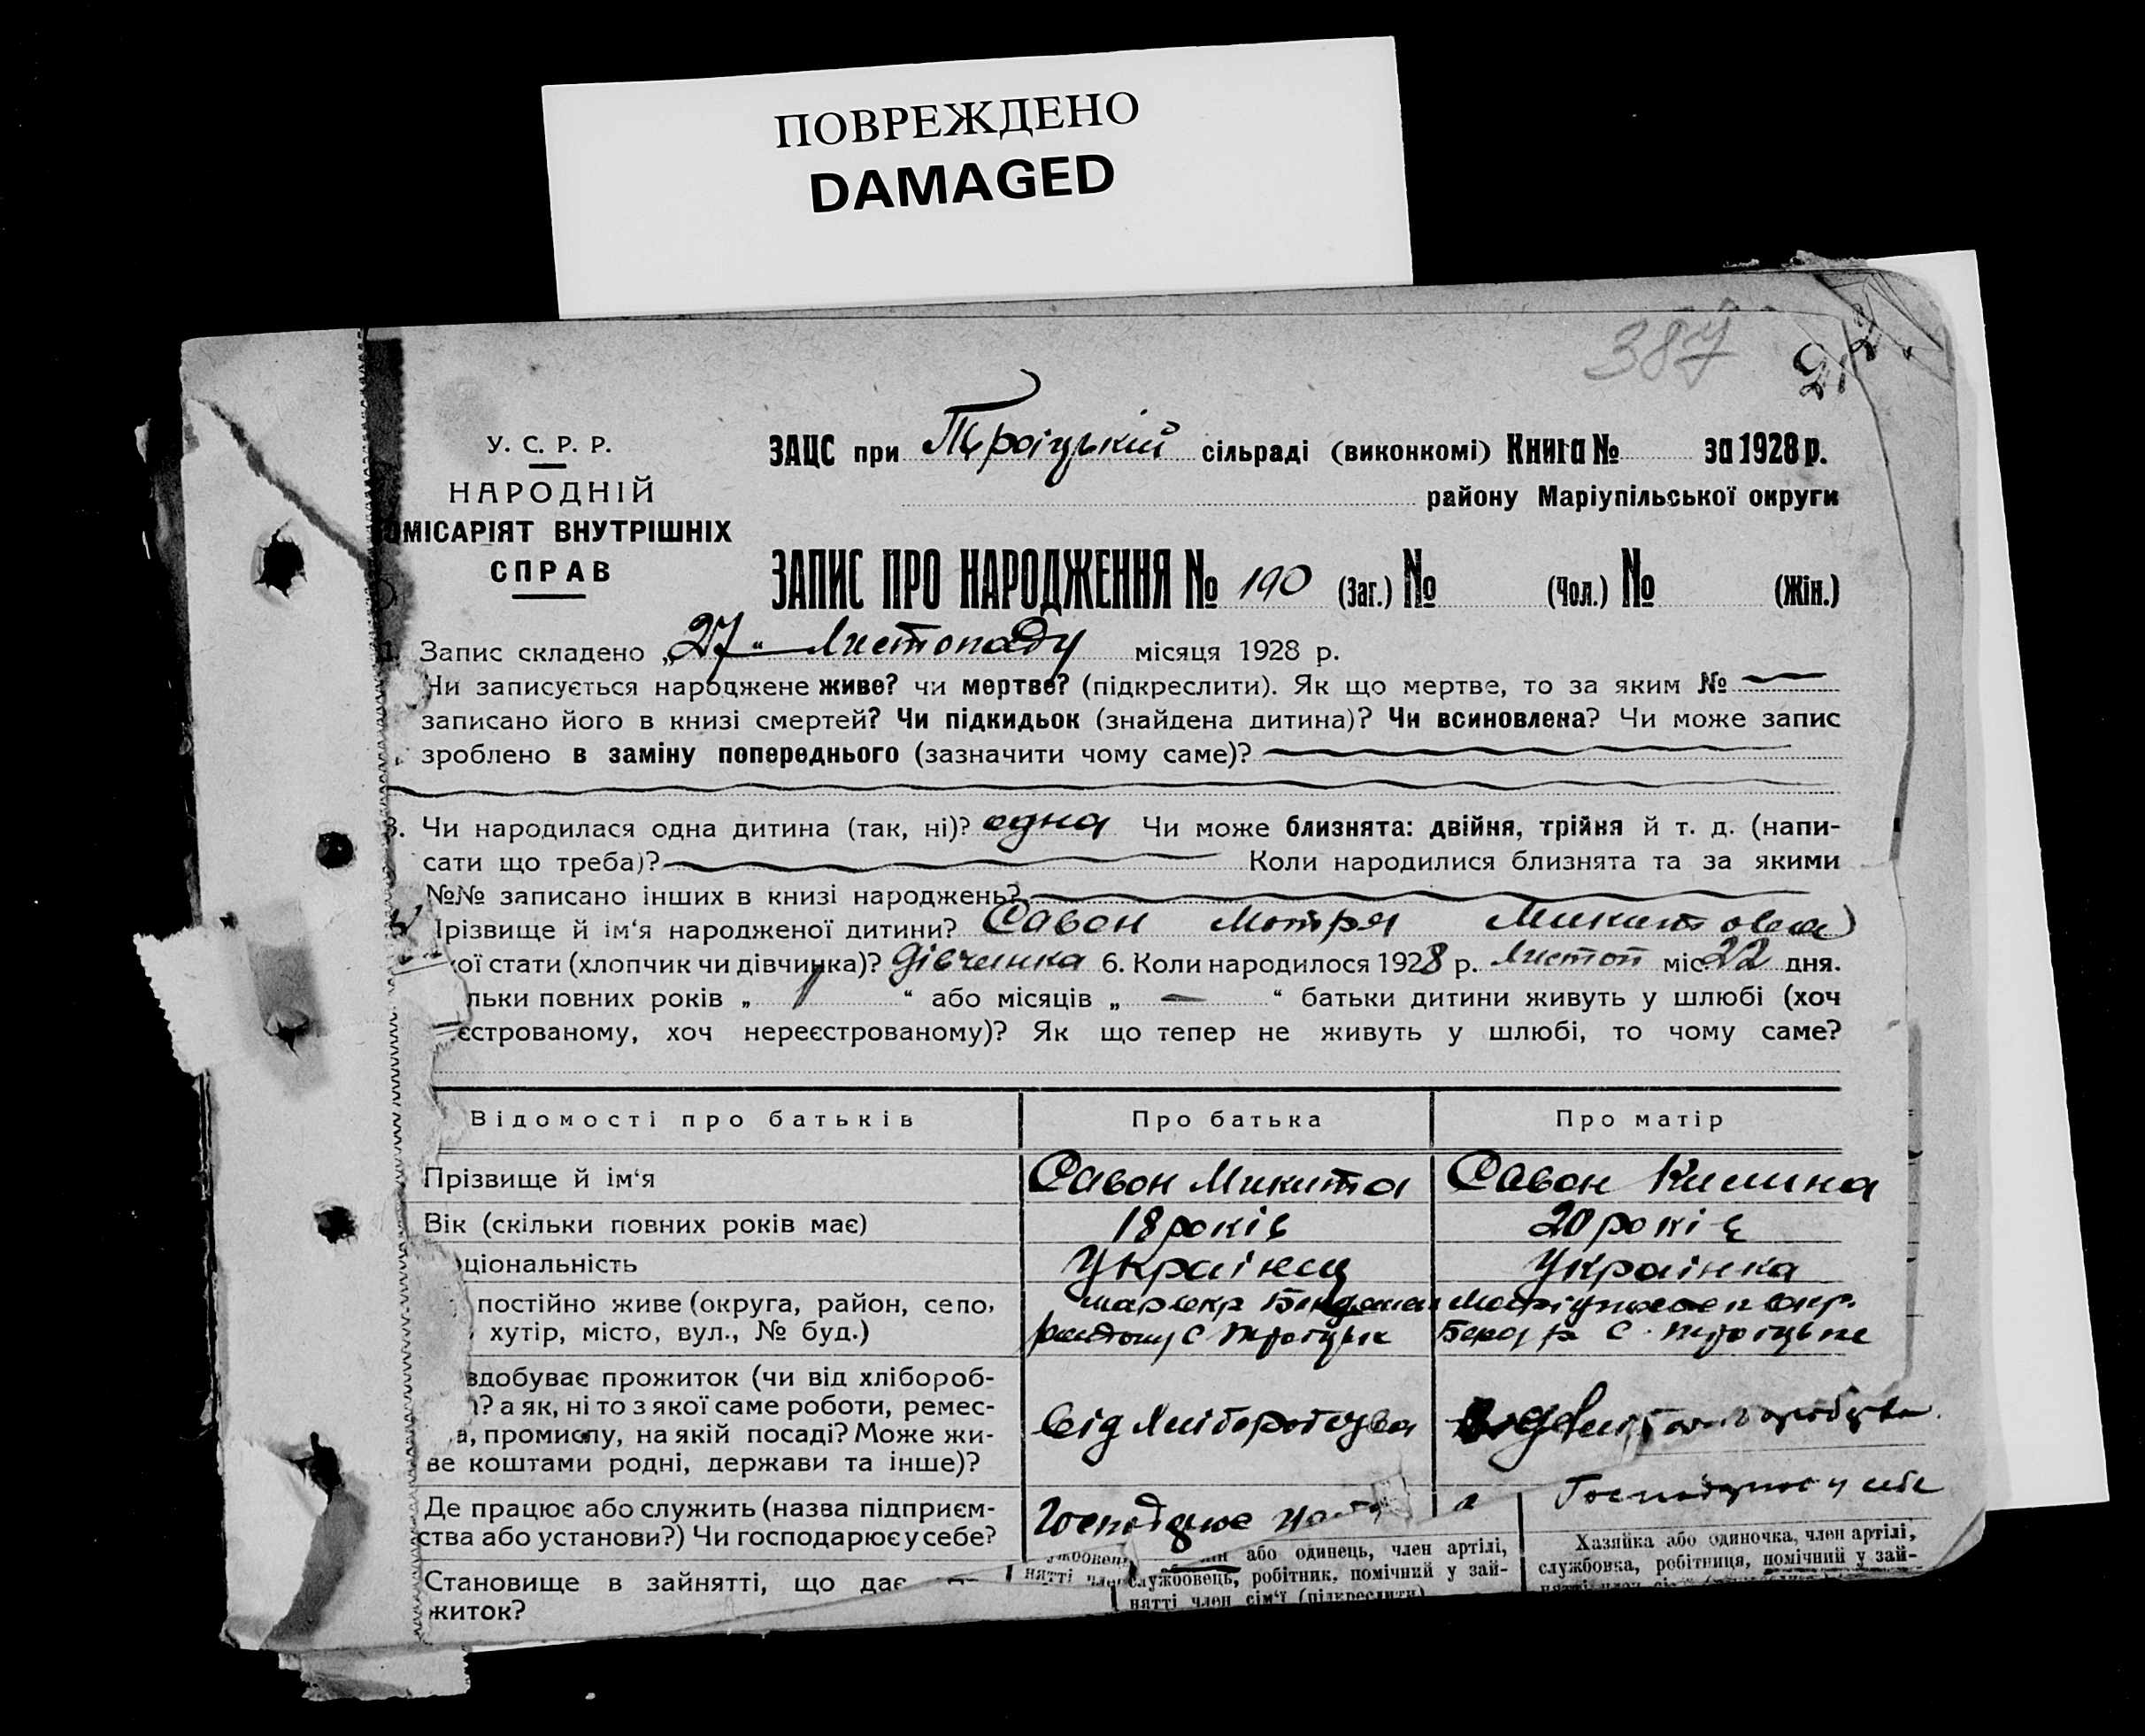 ПОВРЕЖДЕНО
DAMAGED
387
У. С. Р. Р.
НАРОДНІЙ
ОМІСАРІЯТ ВНУТРІШНІХ
СПРАВ
ЗАЦС при Троіцькій сільраді (виконкомі) Книга № за 1928 р.
району Маріупільської округи
ЗАПИС ПРО НАРОДЖЕННЯ № 190 (Заг.) № (Чол.) № (Жін.)
1. Запис складено „27“ Листопаду місяця 1928 р.
Чи записується народжене живе? чи мертве? (підкреслити). Як що мертве, то за яким №
записано його в книзі смертей? Чи підкидьок (знайдена дитина)? Чи всиновлена? Чи може запис
зроблено в заміну попереднього (зазначити чому саме)?
3. Чи народилася одна дитина (так, ні)? одна Чи може близнята: двійня, трійня й т. д. (напи-
сати що треба)? Коли народилися близнята та за якими
№№ записано інших в книзі народжень?
Прізвище й ім‘я народженої дитини? Савон Мотря Микитовна
кої стати (хлопчик чи дівчинка)? дівчинка 6. Коли народилося 1928 р. Листоп міс. 22 дня.
льки повних років „ 1 “ або місяців „ — “ батьки дитини живуть у шлюбі (хоч
еєстрованому, хоч нереєстрованому)? Як що тепер не живуть у шлюбі, то чому саме?
Відомості про батьків Про батька Про матір
Прізвище й ім‘я Савон Микита Савон Килина
Вік (скільки повних років має) 18 років 20 років
ціональність Українец Українка
постійно живе (округа, район, село,
хутір, місто, вул., № буд.) с Троіцьке с. Троіцьке
здобуває прожиток (чи від хлібороб-
? а як, ні то з якої саме роботи, ремес-
а, промислу, на якій посаді? Може жи-
ве коштами родні, держави та інше)?
від хліборобства
Де працює або служить (назва підприєм-
ства або установи?) Чи господарює у себе?
Господарює Господарює у себе
або одинець, член артілі,
службовець, робітник, помічний у зай-
нятті член сім‘ї (підкреслити)
Хазяйка або одиночка, член артілі,
службовка, робітниця, помічний у зай-
Становище в зайнятті, що дає
житок?